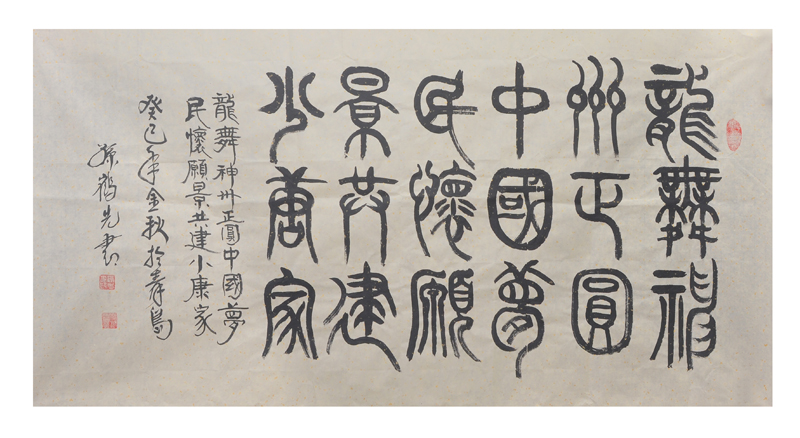 龍舞神
州正圓
中國夢
民懷願
景共建
小康家
龍舞神州正圓中國夢
民懷願景共建小康家
癸巳年金秋於青島
孫鶴先書